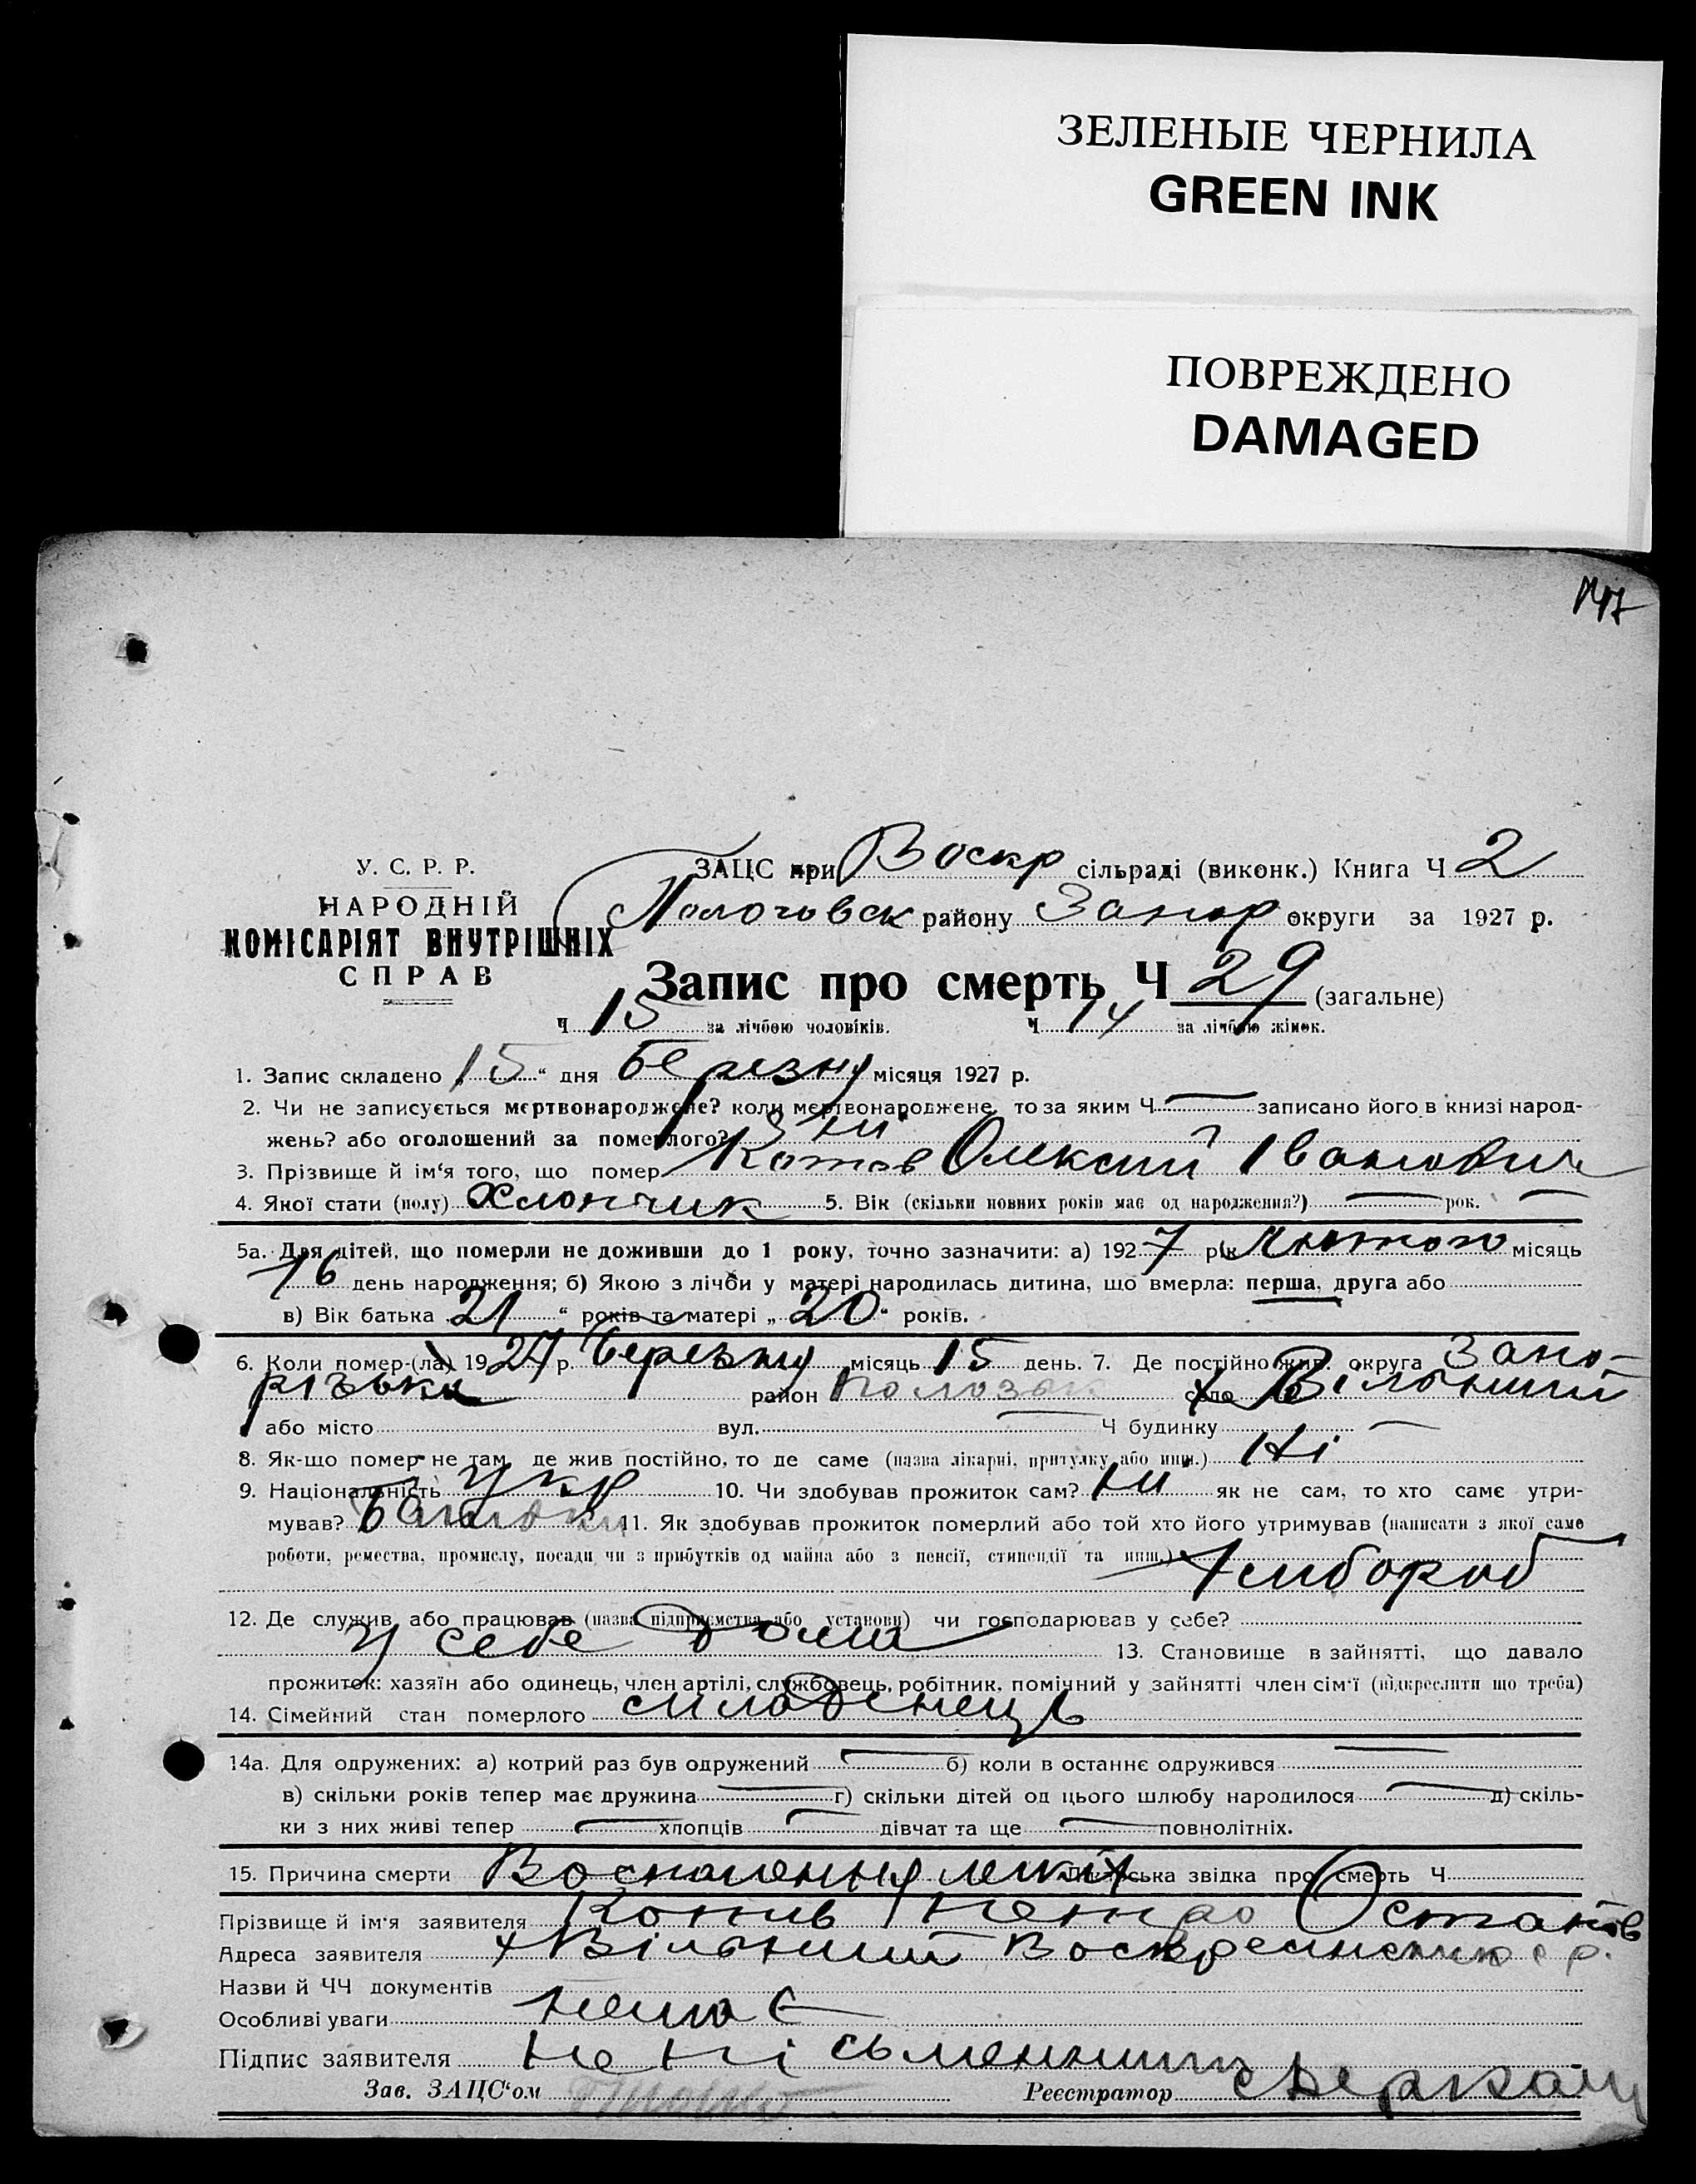 ЗЕЛЕНЫЕ ЧЕРНИЛА
GREEN INK
ПОВРЕЖДЕНО
DAMAGED
У. С. Р. Р.
НАРОДНІЙ
КОМІСАРІЯТ ВНУТРІШНІХ
СПРАВ
ЗАЦС при Воскр сільраді (виконк.) Книга Ч 2
Пологовск району Запор округи за 1927 р.
Запис про смерть Ч 29 (загальне)
Ч 15 за лічбою чоловіків. Ч 14 за лічбою жінок.
1. Запис складено „15“ дня березня місяця 1927 р.
2. Чи не записується мертвонароджене? коли мертвонароджене, то за яким Ч — записано його в книзі народ-
жень? або оголошений за померлого? ни
3. Прізвище й ім‘я того, що помер Котов Олексий Іванович
4. Якої стати (полу) Хлопчик 5. Вік (скільки повних років має од народження?) — рок. —
5а. Для дітей, що померли не доживши до 1 року, точно зазначити: а) 1927 рік Лютого місяць
16 день народження; б) Якою з лічби у матері народилась дитина, що вмерла: перша, друга або
в) Вік батька „21“ років та матері „20“ років.
6. Коли помер-(ла) 1927 р. березня місяць 15 день. 7. Де постійно жив. округа Запо-
різька район Пологовск село х Вільний
або місто вул. — Ч будинку —
8. Як-що помер не там, де жив постійно, то де саме (назва лікарні, притулку або инш.) Ні
9. Національність Укр 10. Чи здобував прожиток сам? ни як не сам, то хто саме утри-
мував? Батьки 11. Як здобував прожиток померлий або той хто його утримував (написати з якої саме
роботи, ремества, промислу, посади, чи з прибутків од майна або з пенсії, стипендії та инш.)
Хлібороб
12. Де служив або працював (назва підприємства або установи) чи господарював у себе?
У себе дома 13. Становище в зайнятті, що давало
прожиток: хазяїн або одинець, член артілі, службовець, робітник, помічний у зайнятті член сім‘ї (підкреслити що треба)
14. Сімейний стан померлого младенець
14а. Для одружених: а) котрий раз був одружений — б) коли в останнє одружився —
в) скільки років тепер має дружина — г) скільки дітей од цього шлюбу народилося — д) скіль-
ки з них живі тепер — хлопців — дівчат та ще — повнолітніх.
15. Причина смерти Воспаления легких Лікарська звідка про смерть Ч
Прізвище й ім‘я заявителя Котив Петро Остапов
Адреса заявителя х Вільний Воскресинскіи с р.
Назви й ЧЧ документів
Особливі уваги немає
Підпис заявителя не пісьменний
Зав. ЗАЦС‘ом Реєстратор